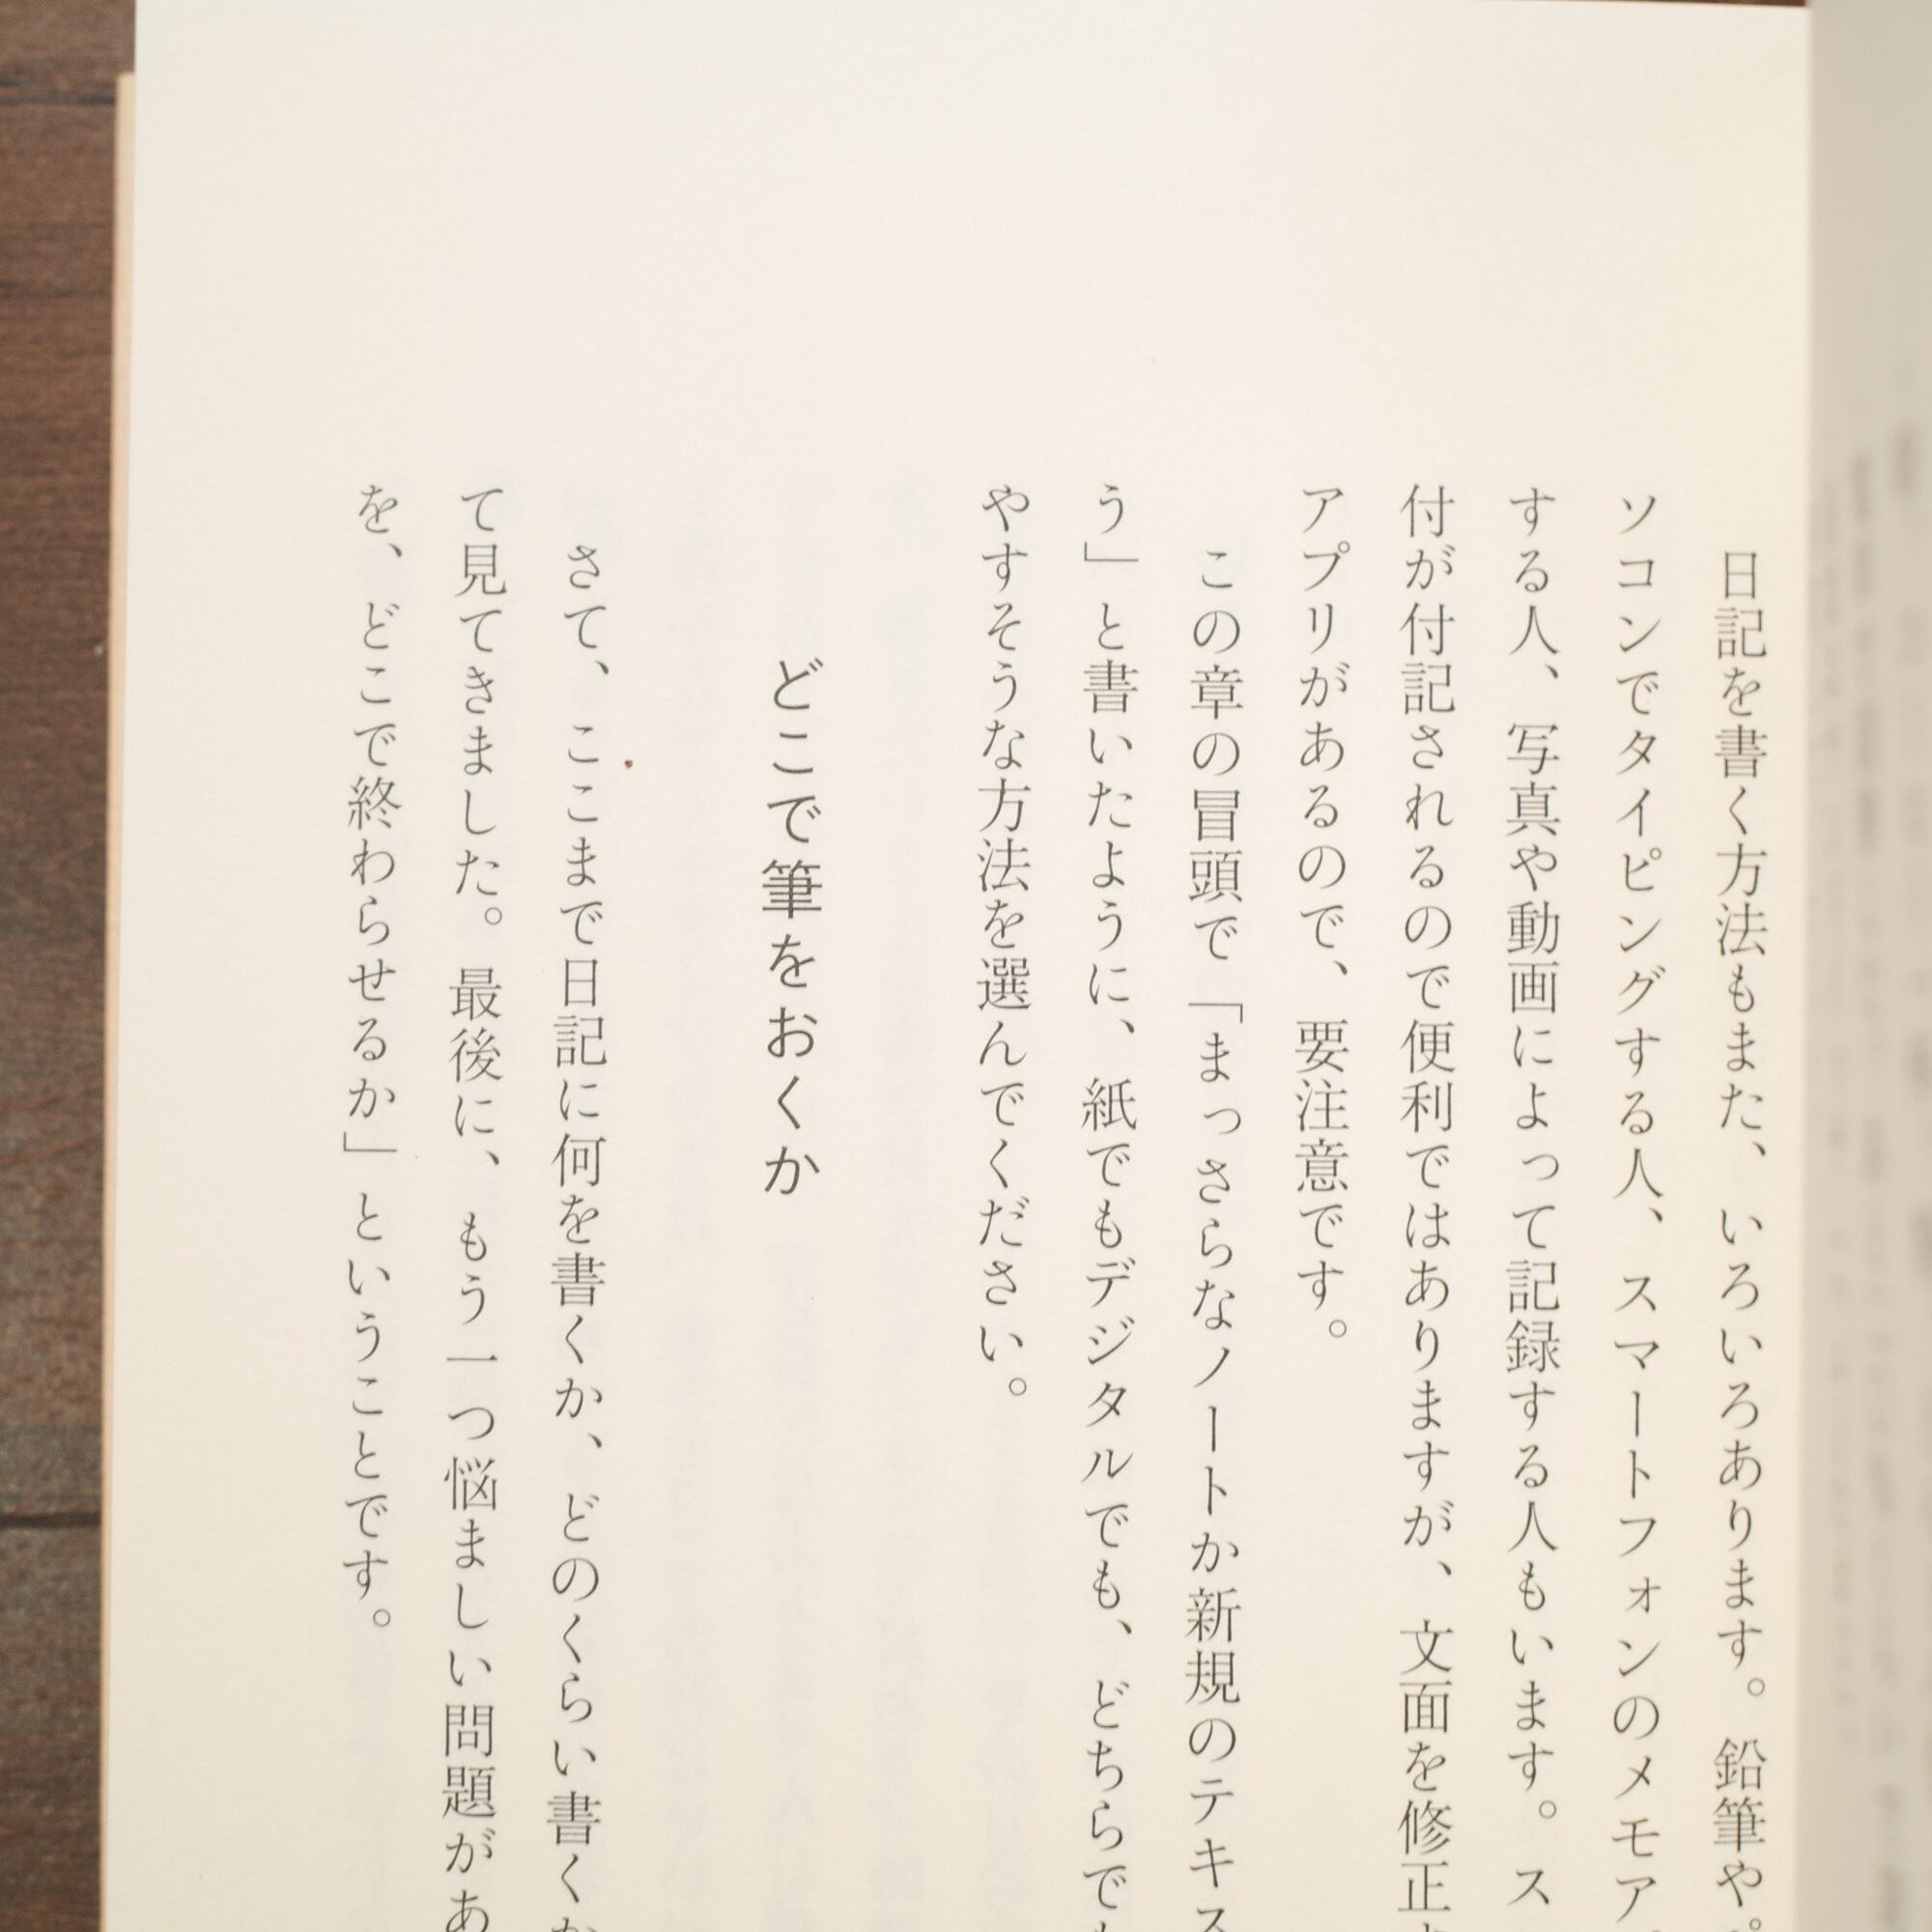 日記を書く方法もまた、いろいろあります。鉛筆や
ソコンでタイピングする人、スマートフォンのメモア
する人、写真や動画によって記録する人もいます。ス
付が付記されるので便利ではありますが、文面を修正
アプリがあるので、要注意です。
この章の冒頭で「まっさらなノートか新規のテキス
う」と書いたように、紙でもデジタルでも、どちらで
やすそうな方法を選んでください。
どこで筆をおくか
さて、ここまで日記に何を書くか、どのくらい書くか
て見てきました。最後に、もう一つ悩ましい問題があ
を、どこで終わらせるか」ということです。